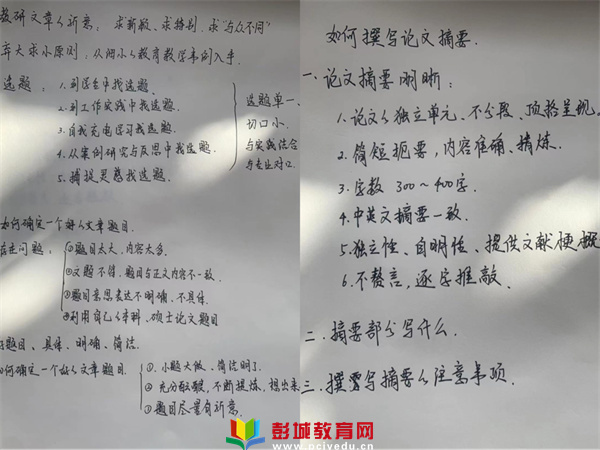 教研文章的新意：求新颖、求特别、求"与众不同"
弃大求小原则：从细小的教育教学事例入手.
选题：
1. 到课台中找选题.
2. 到工作实践中找选题.
3. 自我充电学习找选题.
4. 从案例研究与反思中找选题.
5. 捕捉灵感找选题.
选题单一、
切口小.
与实践结合
与专业对口.
如何确定一个好的文章题目.
存在问题：
①题目太大，内容太多.
②文题不符，题目与正文内容不一致.
③题目意思表达不明确、不具体.
④利用自己的本科、硕士论文题目
题目、具体、明确、简洁.
如何确定一个好的文章题目
①. 小题大做、简洁明了.
②. 充分酝酿，不断提炼，提出来
③题目尽量有新意.
如何撰写论文摘要.
一、论文摘要明晰：
1. 论文的独立单元、不分段、顶格呈现.
2. 简短扼要，内容准确、精炼.
3. 字数 300～400字.
4. 中英文摘要一致.
5. 独立性、自明性、提供文献梗概
6. 不赘言，逐字推敲.
二. 摘要部分写什么.
三. 撰写摘要的注意事项.
彭城教育网
www.pcjyedu.cn